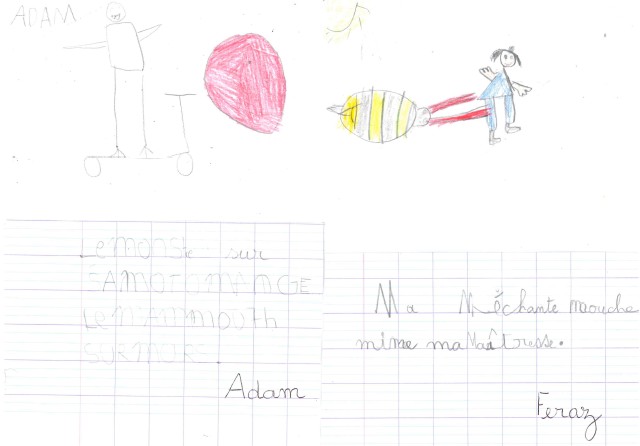 ADAM
Le monste sur
SA MOTO MANGE
Le mammouth
SUR MURS.
Adam
Ma Méchante maouche
mime ma Maîtresse.
Feraz